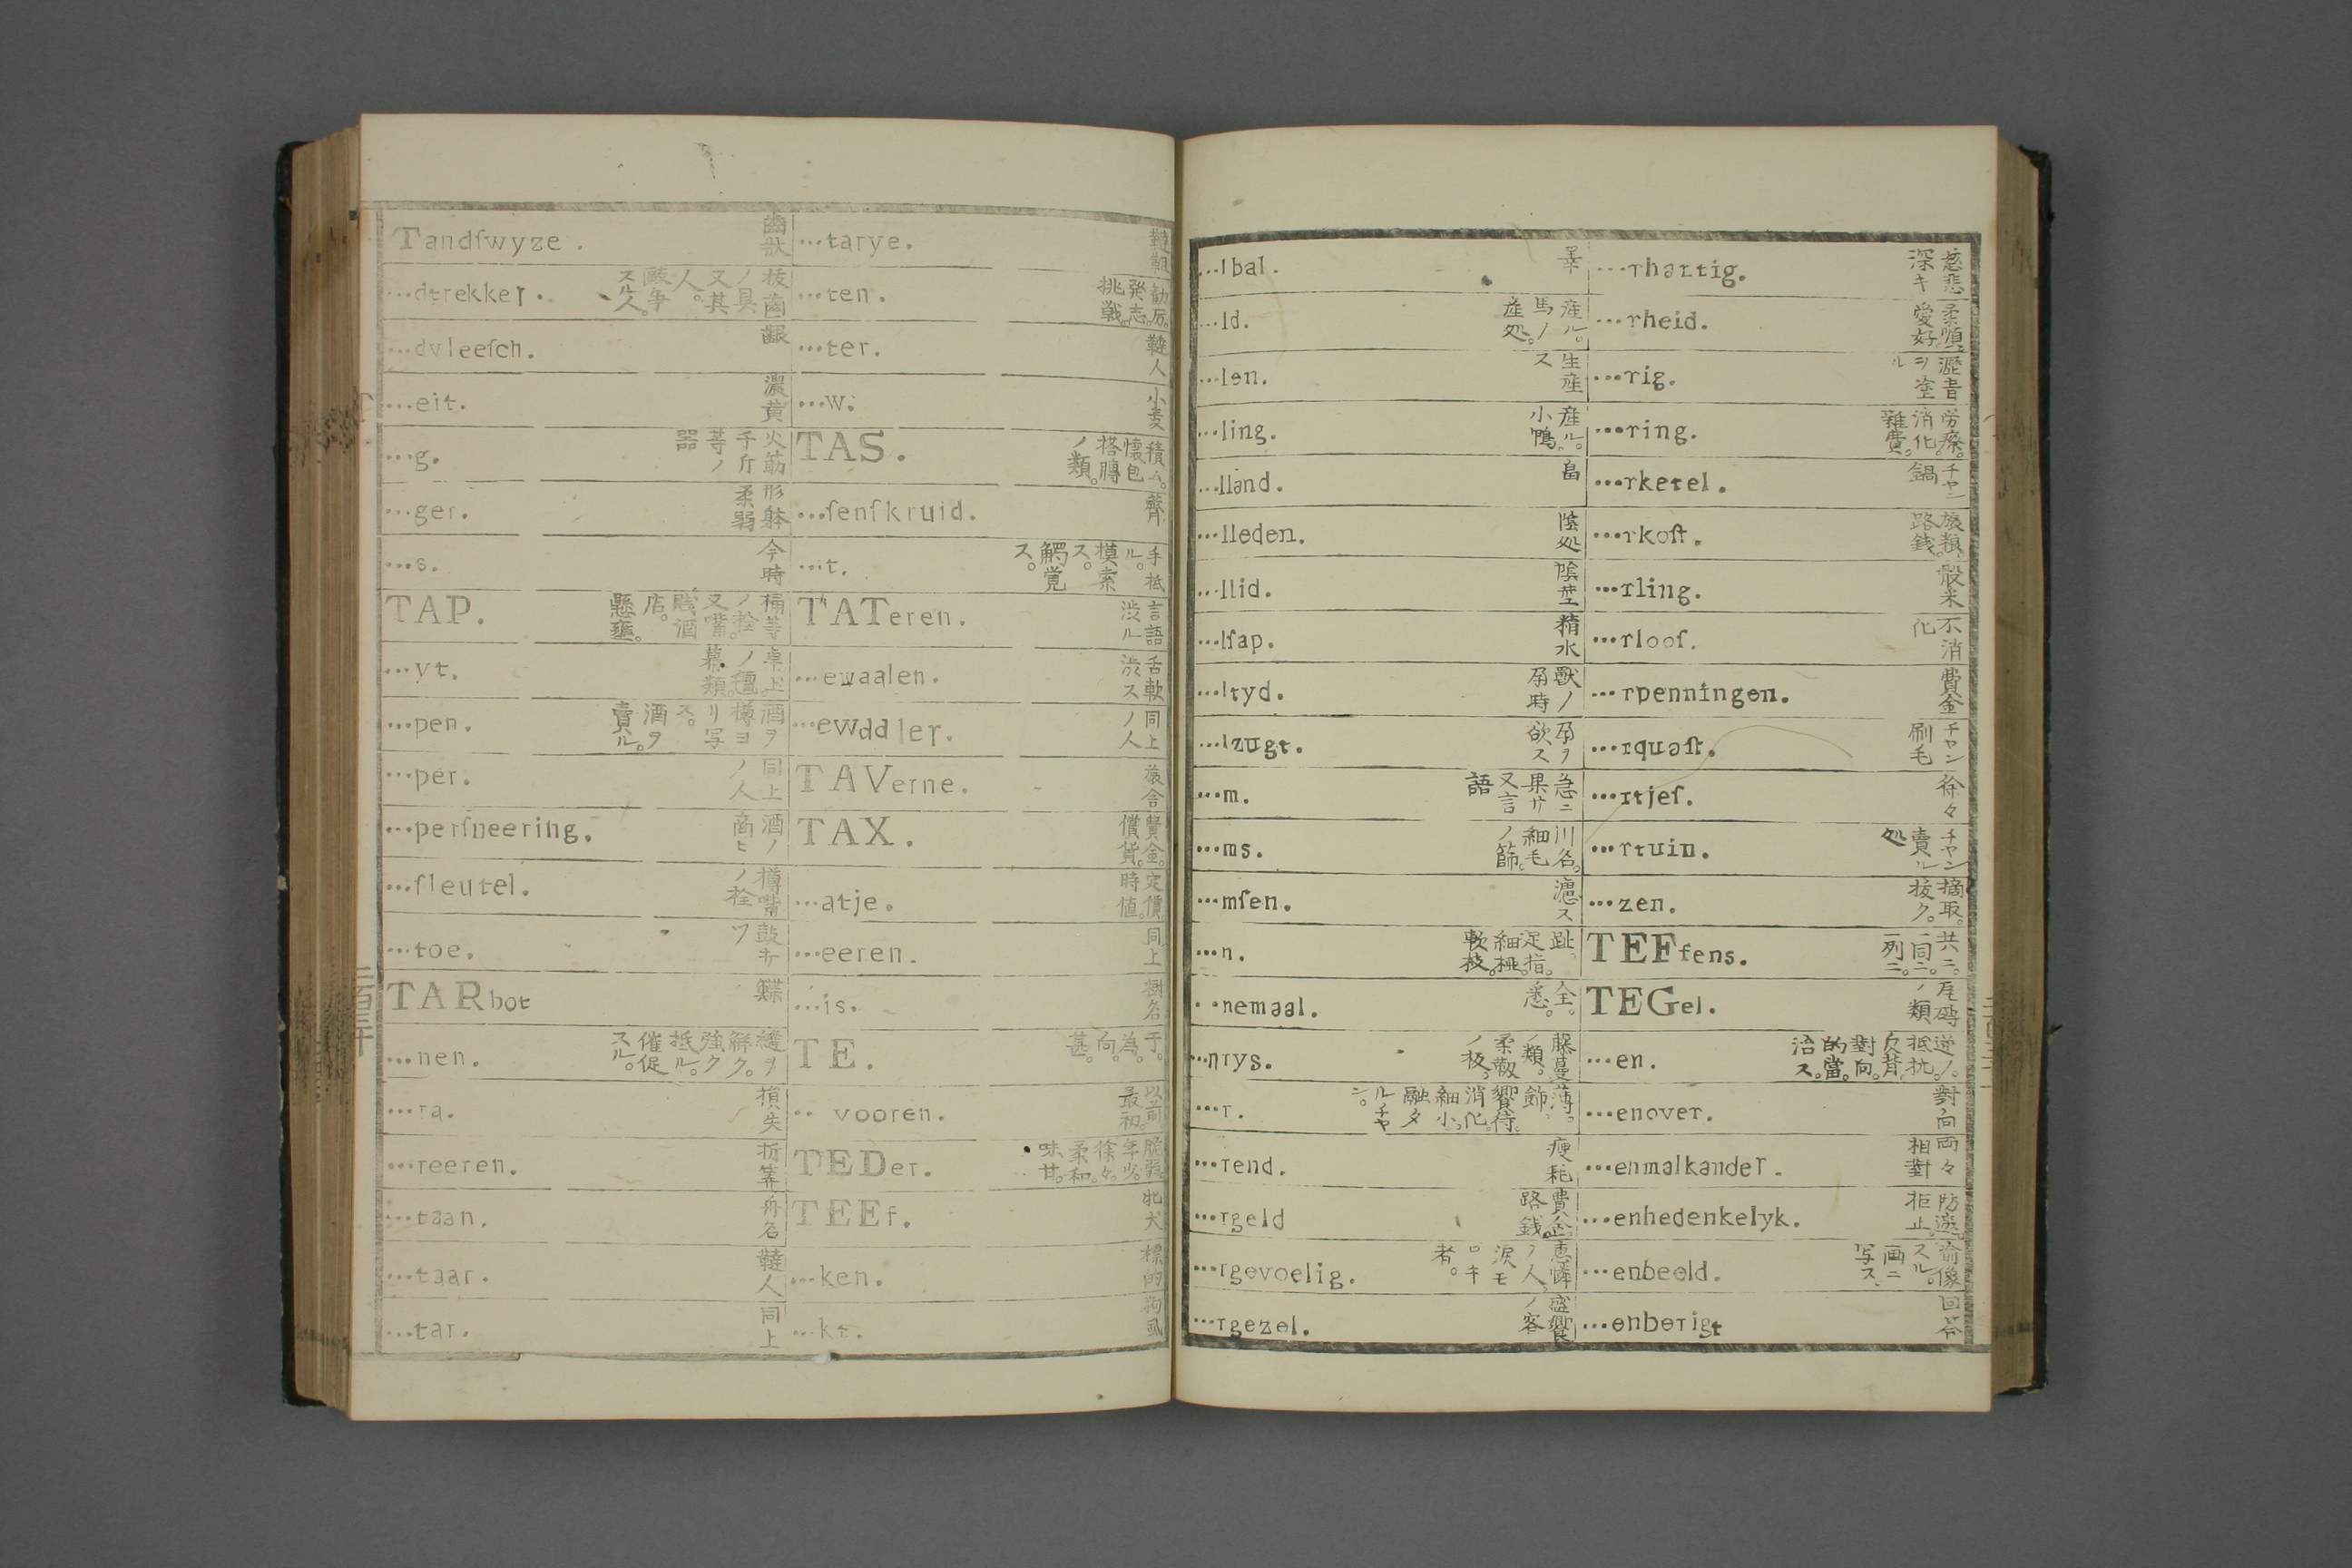 Tandſwyze. 齒狀
...dtrekker. 抜齒ノ具又其人。鬪争スル人。
...dvleeſch. 齦
...eit. 濃黄
...g. 火筯千斤等ノ器
...ger. 形躰柔弱
...s. 今時
TAP. 桶等ノ栓又嘴。賤酒店。
...yt. 卓上ノ
...pen. 酒ヲ樽ヨリ写ス。酒ヲ賣ル。
...per. 同上ノ人
...perſneering. 酒ノ商ヒ
...ſleutel. 樽嘴ノ栓
...toe. 鼓
TARbot 鰈
...nen. 縫ヲ解ク。強ク抵ル。催促スル。
...ra. 損失
...reeren. 折筭
...taan. 舟名
...taar. 韃人
...tar. 同上
...tarye. 韃靼
...ten. 勧励。発志。挑戦。
...ter. 韃人
...w. 小麦
TAS. 積ム。懐包搭膊ノ類。
...ſenſkruid. 薺
...t. 手抵ル。摸索ス。觸覚ス。
TATeren. 言語渋ル
...ewaalen. 舌軟渋ス
...ewddler. 同上ノ人
TAVerne. 旅舎
TAX. 賞金。償貨。
...atje. 定價。時値。
...eeren. 同上
...is. 樹名
TE. 于。為。向。甚。
.. vooren. 以前最初。
TEDer. 脆弱。年少。徐々。柔和。味甘。
TEEf. 牝犬
...ken. 標的
...kt. 狗虱
...lbal. 睾
...ld. 産ル。馬ノ産処。
...len. 生産ス
...ling. 産ル。小鴨。
...lland. 畠
...lleden. 陰処
...llid. 陰莖
...lſap. 精水
...ltyd. 獸ノ孕時
...lzugt. 孕ヲ欲ス
...m. 急ニ果サ又言語
...ms. 川名。細毛ノ篩。
...mſen. 漉ス
...n. 趾。足指。細極。軟枝。
..nemaal. 全。悉。
...nrys. 藤蔓ノ類。柔軟ノ枝。
...r. 薄。飾。饗待。消化。細小。融タルチヤン。
...rend. 瘦耗
...rgeld 費金。路銭。
...rgevoelig. 恵憐ノ人。涙モロキ者。
...rgezel. 盛饗ノ客
...rhartig. 慈悲深キ
...rheid. 柔順。愛好。
...rig. 瀝青ヲ塗ル
...ring. 労瘵。消化。雜費。
...rketel. チヤン鍋
...rkoſt. 旅粮。路銭。
...rling. 骰米
...rlooſ. 不消化
...rpenningen. 費金
...rquaſt. チヤン刷毛
...rtjeſ. 徐々
...rtuin. チヤン賣ル処
...zen. 摘取。抜ク。
TEFfens. 共ニ。一同ニ。一列ニ。
TEGel. 瓦磚ノ類
...en. 逆ノ。抵抗。反背。對向。的當。洽ス。
...enover. 對向
...enmalkander. 両々相對
...enhedenkelyk. 防遏。拒止。
...enbeeld. 喻像スル。画ニ写ス
...enberigt 回答